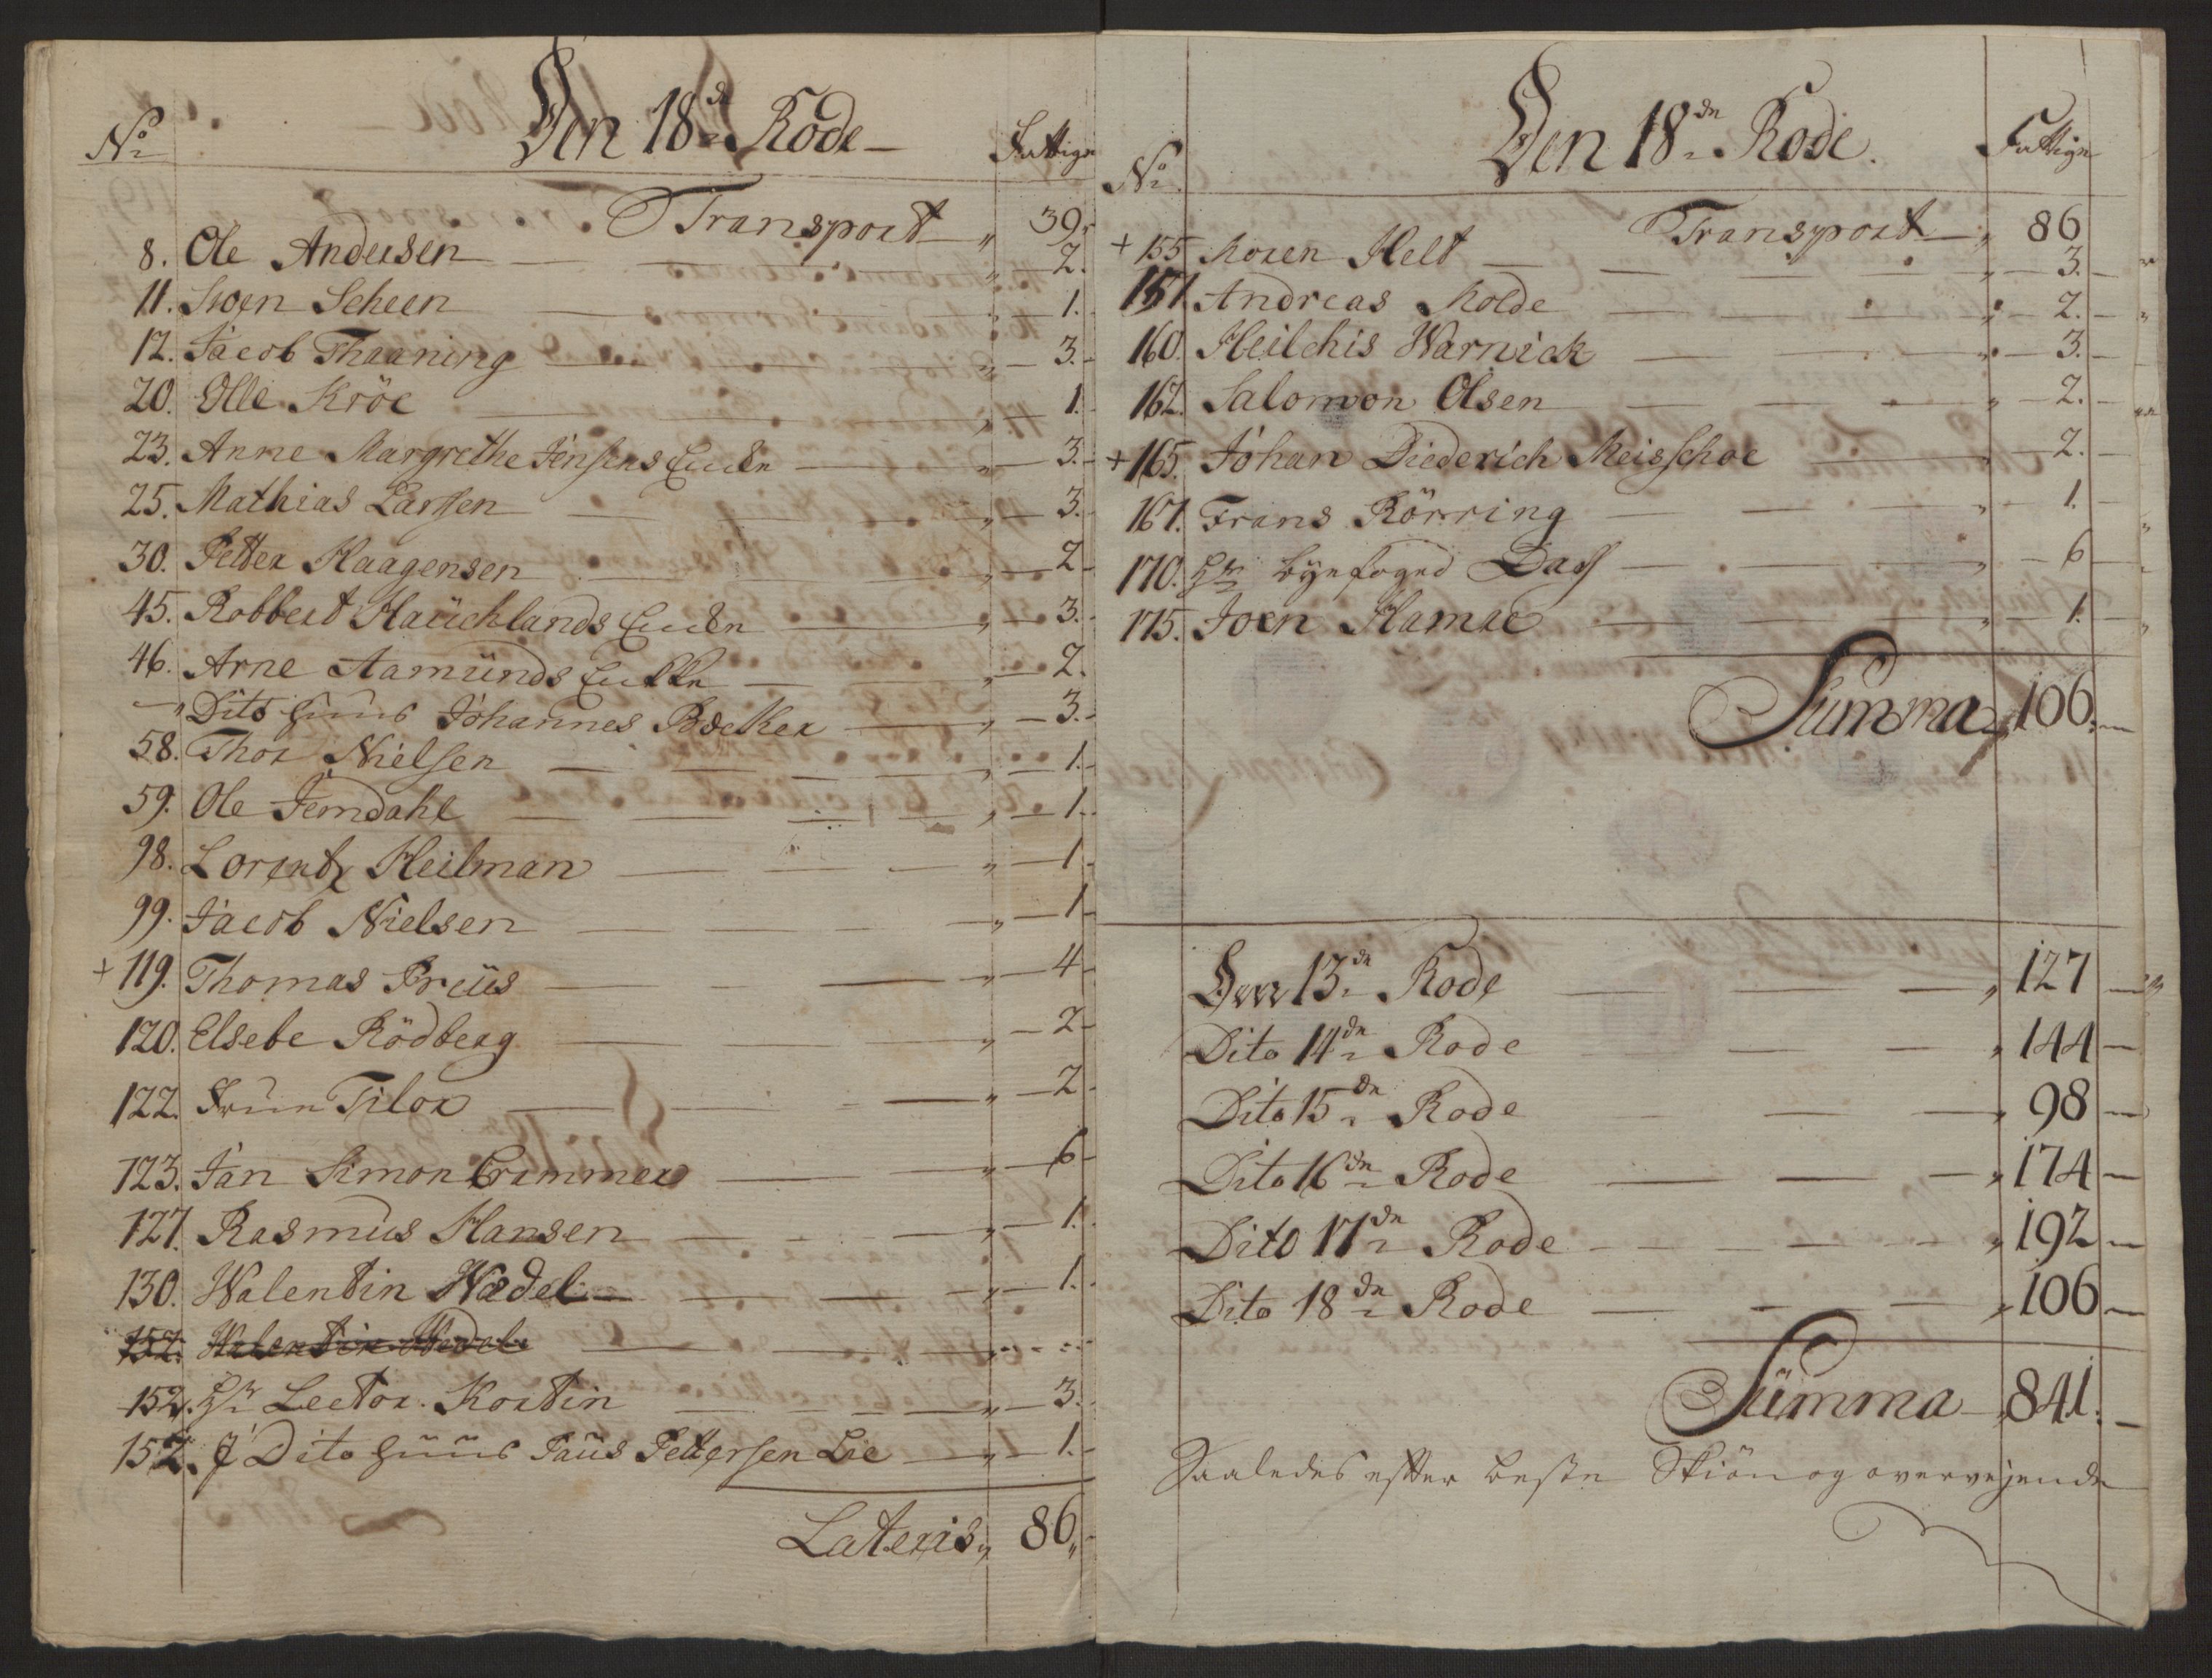 No Den 18de Rode Fattige
Transport 39
8. Ole Andersen 2.
11. Swen Scheen 1.
12. Jacob Thaaning 3.
20. Olle Kröe 1.
23. Anne Margrethe Jensens Encke 3.
25. Mathias Larssen 3.
30. Petter Haagensen 2
45. Robbert Haüchlands Encke 3.
46. Arne Aamünds Encke 2.
" Dito Huus Johannes Bäcker 3.
58. Thor Nielsen 1.
59. Ole Jemdahl 1.
98. Lorentz Heilman 1
99. Jacob Nielsen 1
+ 119. Thomas Prüs 4
120. Elsebe Rödberg 2
122. Frün Tilor 2
123. Jan Simon Crammer 6
127. Rasmus Hansen 1.
130. Walentin Wedel 1.
152. Walentin Wedel
152. Hr Lector Kortin 3.
152. J Dito Huus Paüs Pettersen Lie 1.
Lateris 86
No Den 18de Rode. Fattige
Transport 86
+ 155 Moren Helt 3.
157. Andreas Molde 2.
160. Heilchis Warnick 3.
162. Salomon Olsen 2.
+ 165. Johan Diederich Meisschoe 2.
167. Frans Rörring 1.
170. Hr byefoged Dass 6
175. Joen Hamre 1.
Summa 106
Den 13de Rode 127
Dito 14de Rode 144
Dito 15de Rode 98
Dito 16de Rode 174
Dito 17de Rode 192
Dito 18de Rode 106
Summa 841.
Saaledes efter beste Skiön og overvejende